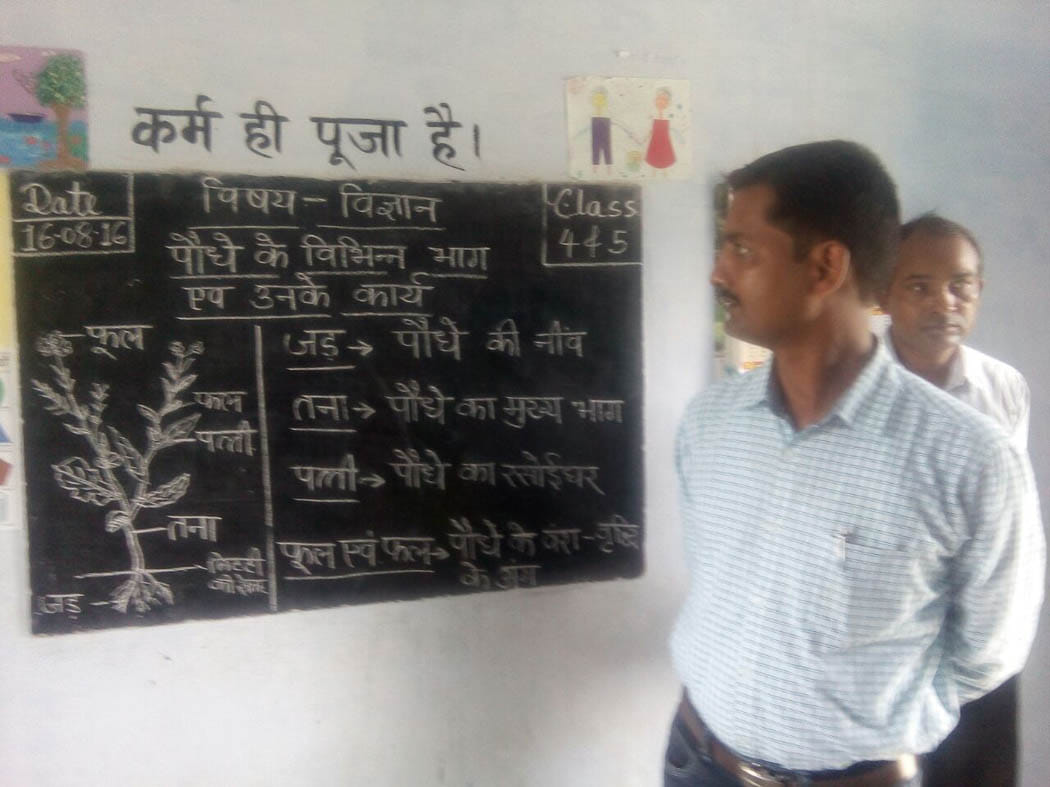 कर्म ही पूजा है।
Date
16-08-16
विषय - विज्ञान
Class
4 & 5
पौधे के विभिन्न भाग
एव उनके कार्य
फूल
फल
पत्ती
तना
मिट्टी
जड़
जड़ → पौधे की नींव
तना → पौधे का मुख्य भाग
पत्ती → पौधे का रसोईघर
फूल एवं फल → पौधे के वंश - वृद्धि
के अंग